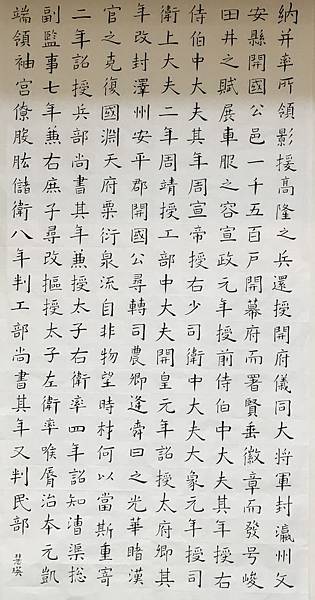 納并率所領影授高隆之兵還授開府儀同大將軍封瀛州文
安縣開國公邑一千五百戸開幕府而署賢垂徽章而發号峻
田井之賦展車服之容宣政元年授前侍伯中大夫其年授右
侍伯中大夫其年周宣帝授右少司衛中大夫大象元年授司
衛上大夫二年周靖授工部中大夫開皇元年詔授太府卿其
年改封澤州安平郡開國公尋轉司農卿逢舜日之光華睹漢
官之克復國淵天府粟衍泉流自非物望時材何以當斯重寄
二年詔授兵部尚書其年兼授太子右衛率四年詔知漕渠総
副監事七年兼右庶子尋改摳授太子左衛率喉脣治本元凱
端領袖宮僚股肱儲衛八年判工部尚書其年又判民部